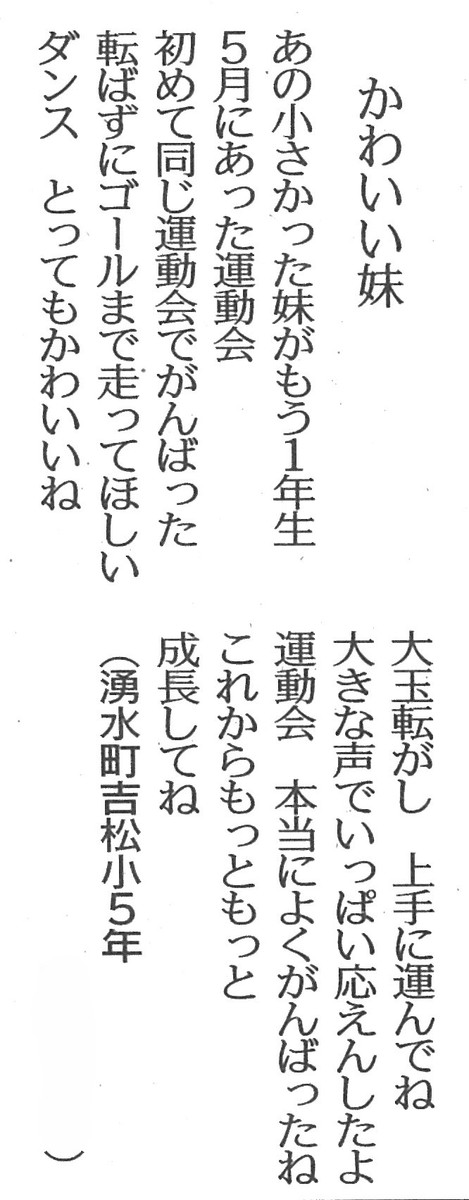 かわいい妹
あの小さかった妹がもう1年生
5月にあった運動会
初めて同じ運動会でがんばった
転ばずにゴールまで走ってほしい
ダンス　とってもかわいいね
大玉転がし　上手に運んでね
大きな声でいっぱい応えんしたよ
運動会　本当によくがんばったね
これからもっともっと
成長してね
（湧水町吉松小5年
）